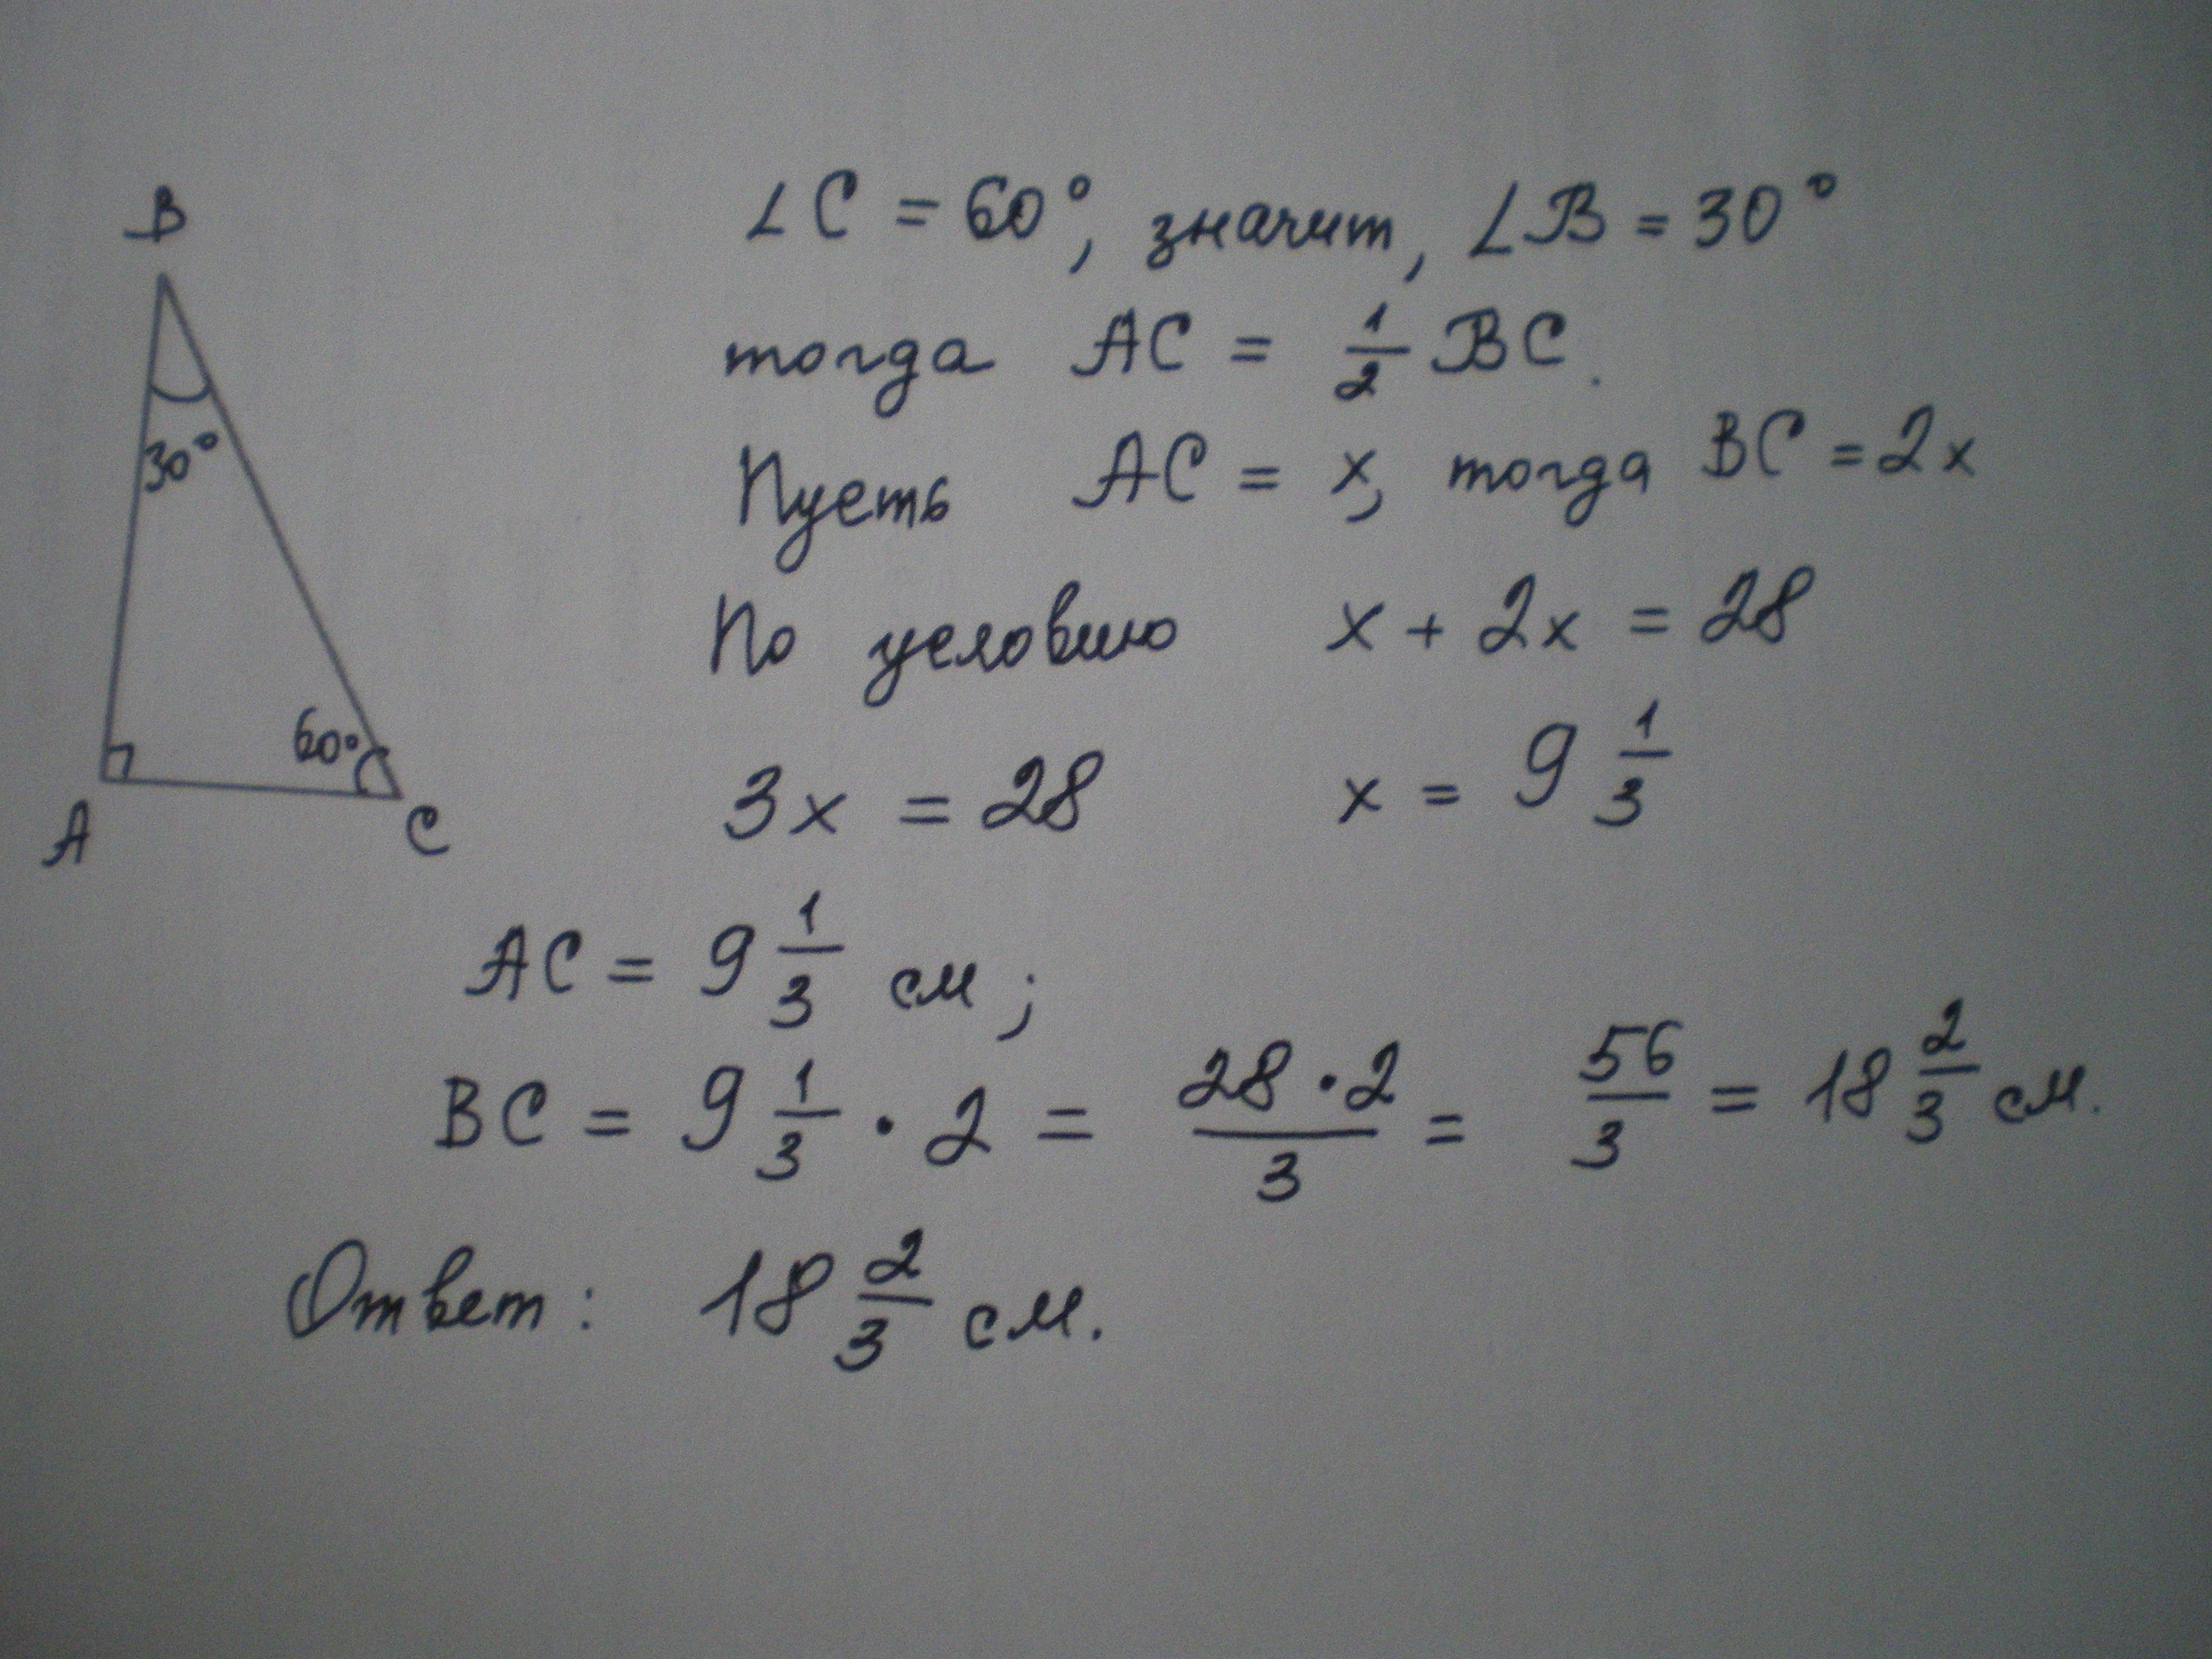 ∠C = 60°, значит, ∠B = 30°
тогда AC = 1/2 BC.
Пусть AC = x, тогда BC = 2x
По условию x + 2x = 28
3x = 28 x = 9 1/3
AC = 9 1/3 см;
BC = 9 1/3 · 2 = 28·2/3 = 56/3 = 18 2/3 см.
Ответ: 18 2/3 см.
B
30°
60°
A C